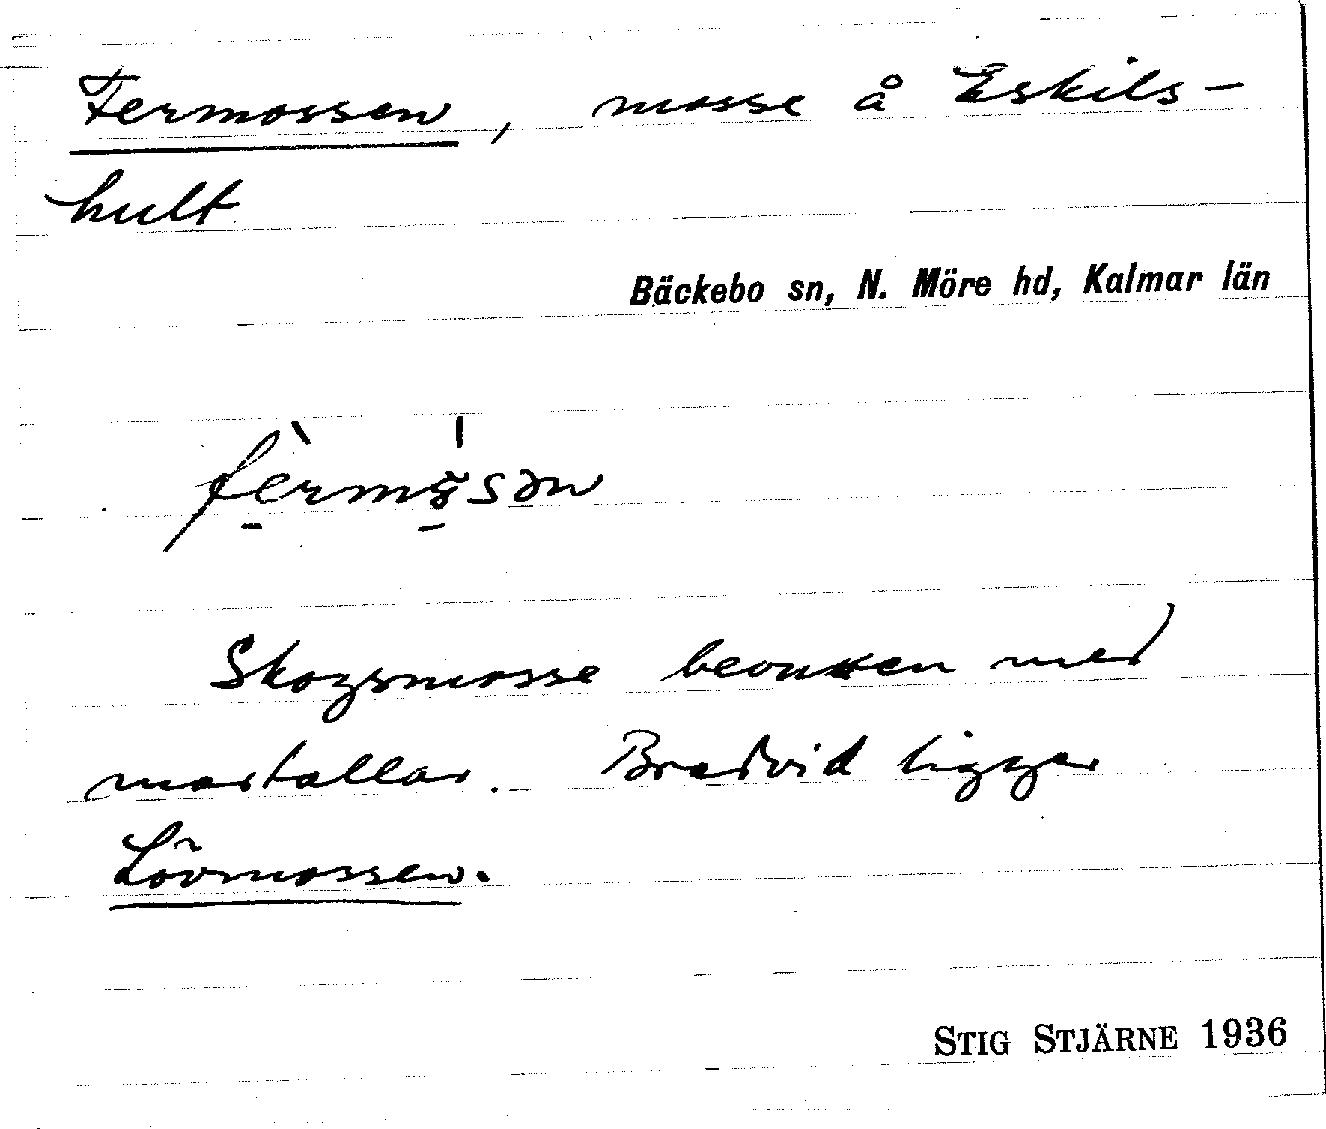 Fermossen, mosse å Eskils-
hult
Bäckebo sn, N. Möre hd, Kalmar län
Skogsmosse bevuxen med
martallar. Bredvid ligger
Lövmossen.
STIG STJÄRNE 1936